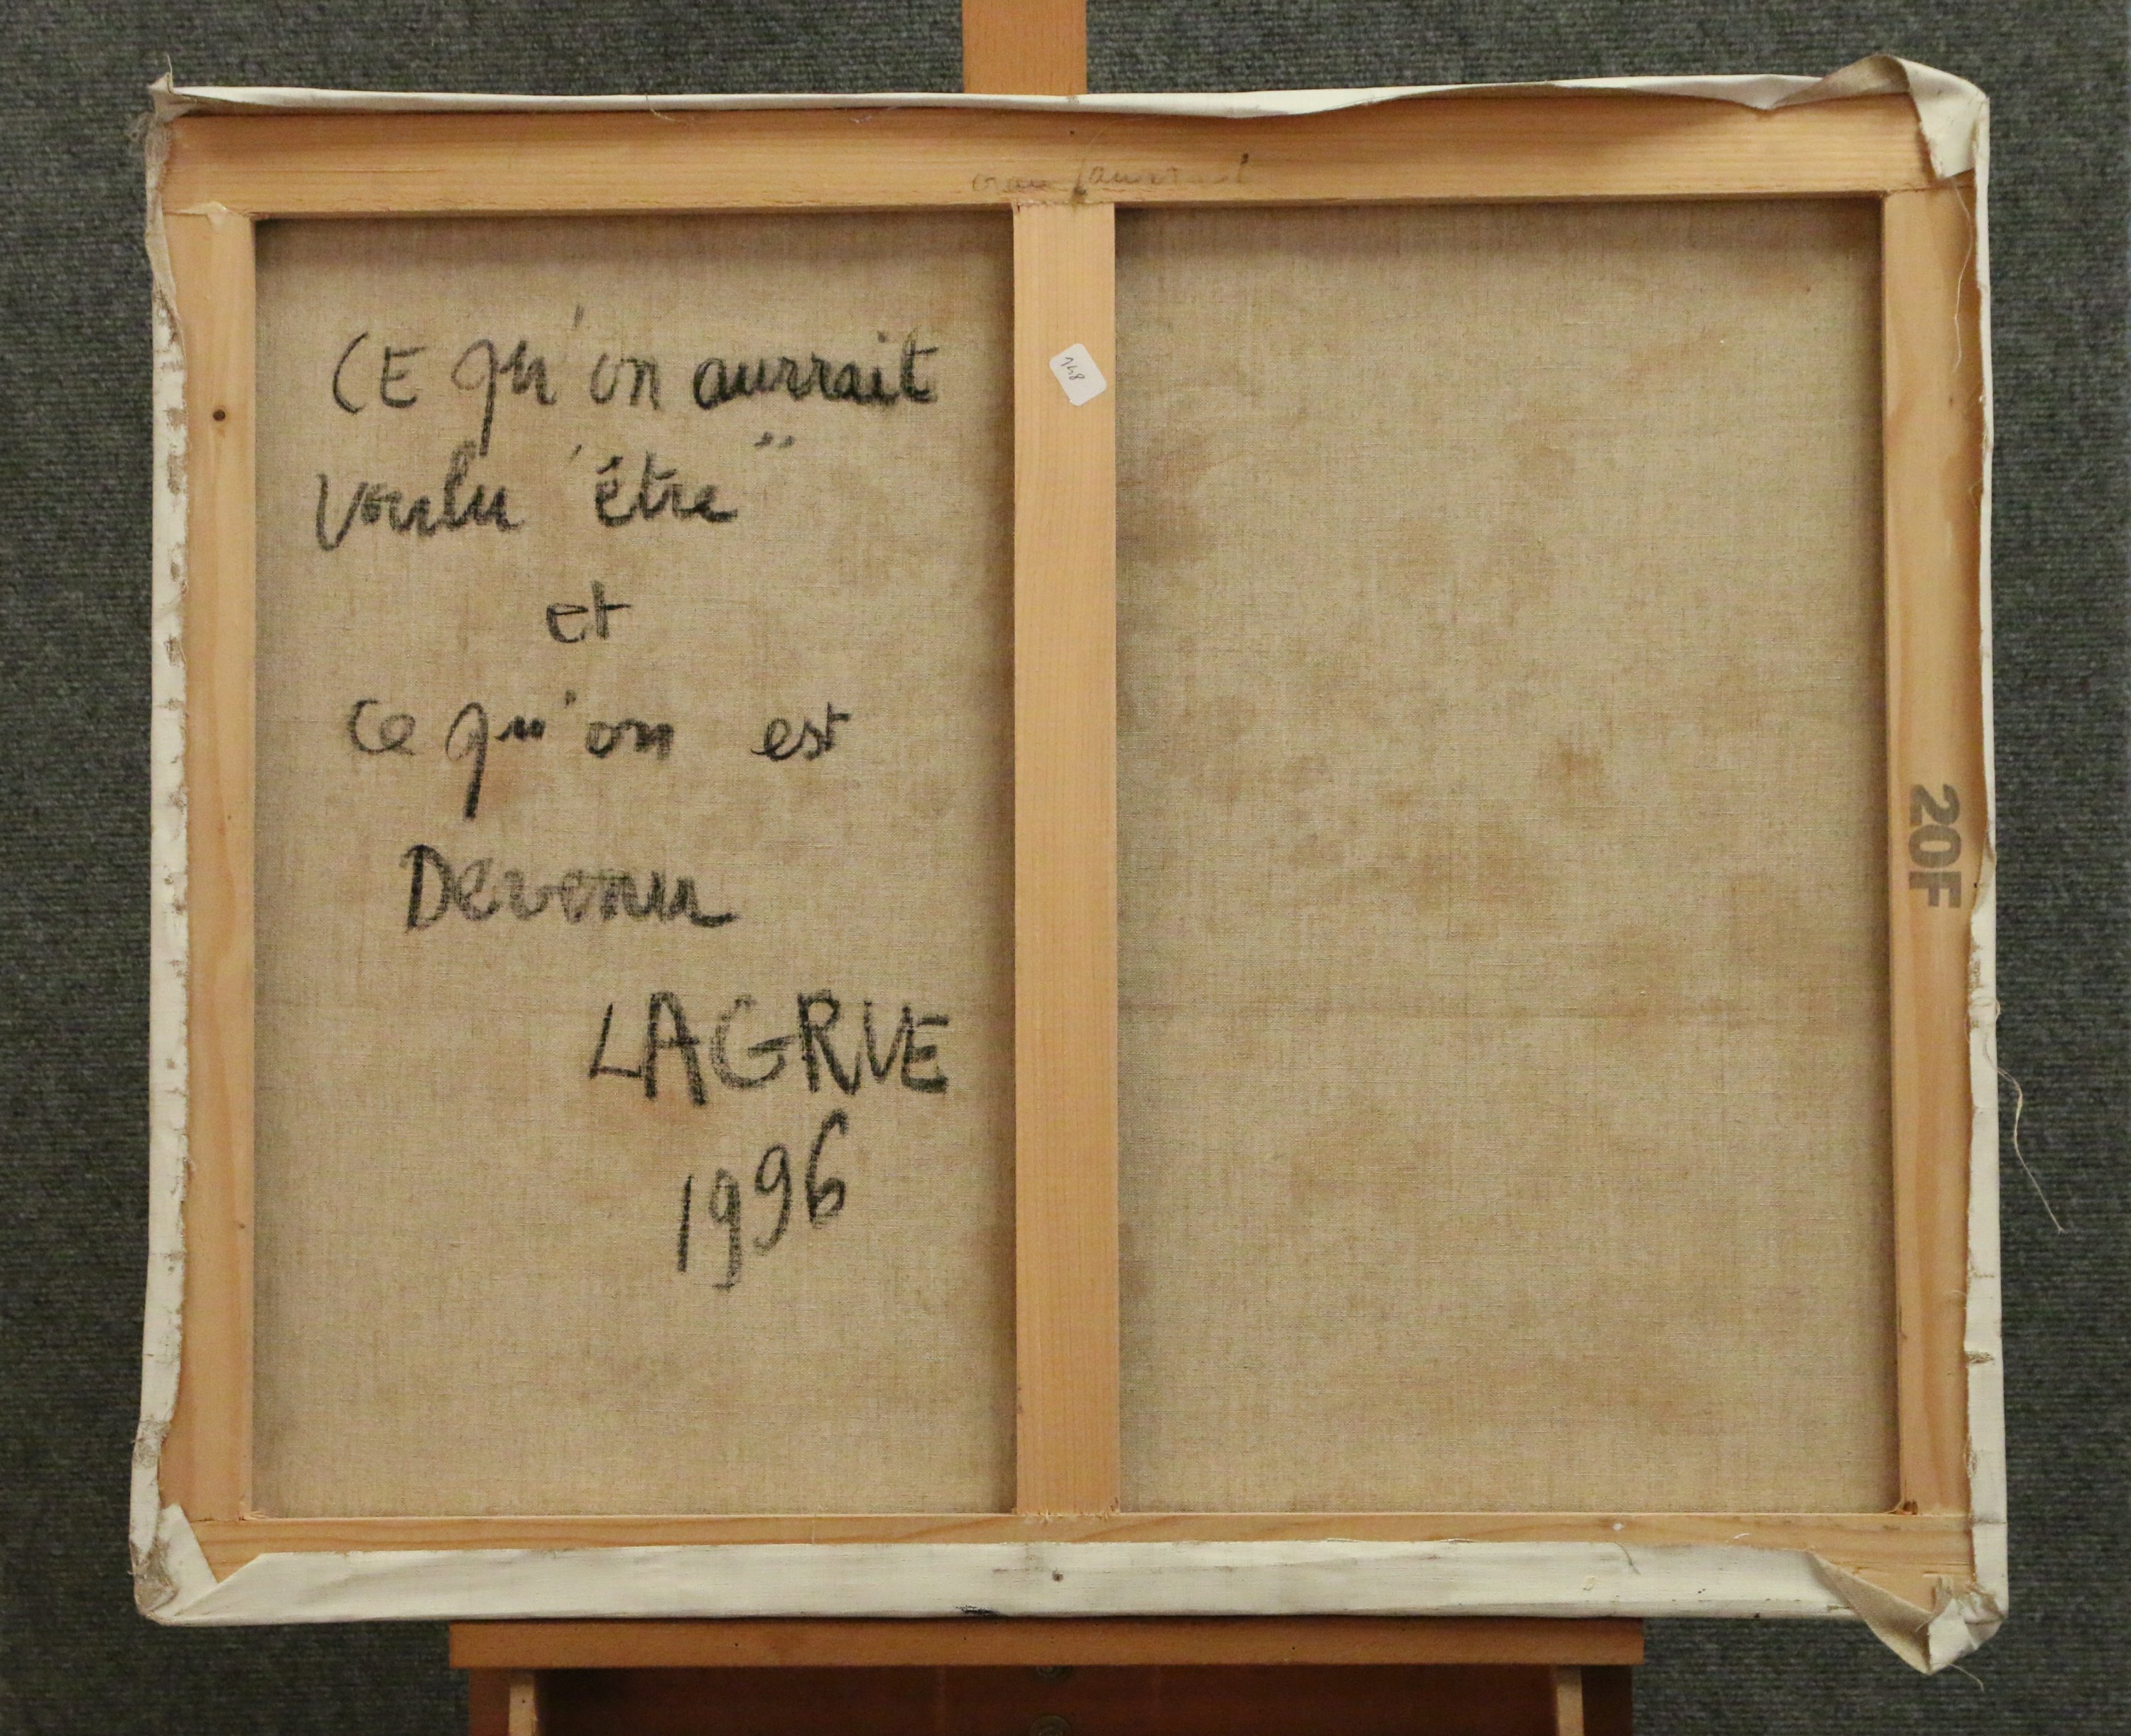 CE qu'on aurrait
voulu "être"
et
ce qu'on est
Devenu
LAGRUE
1996
148
20F